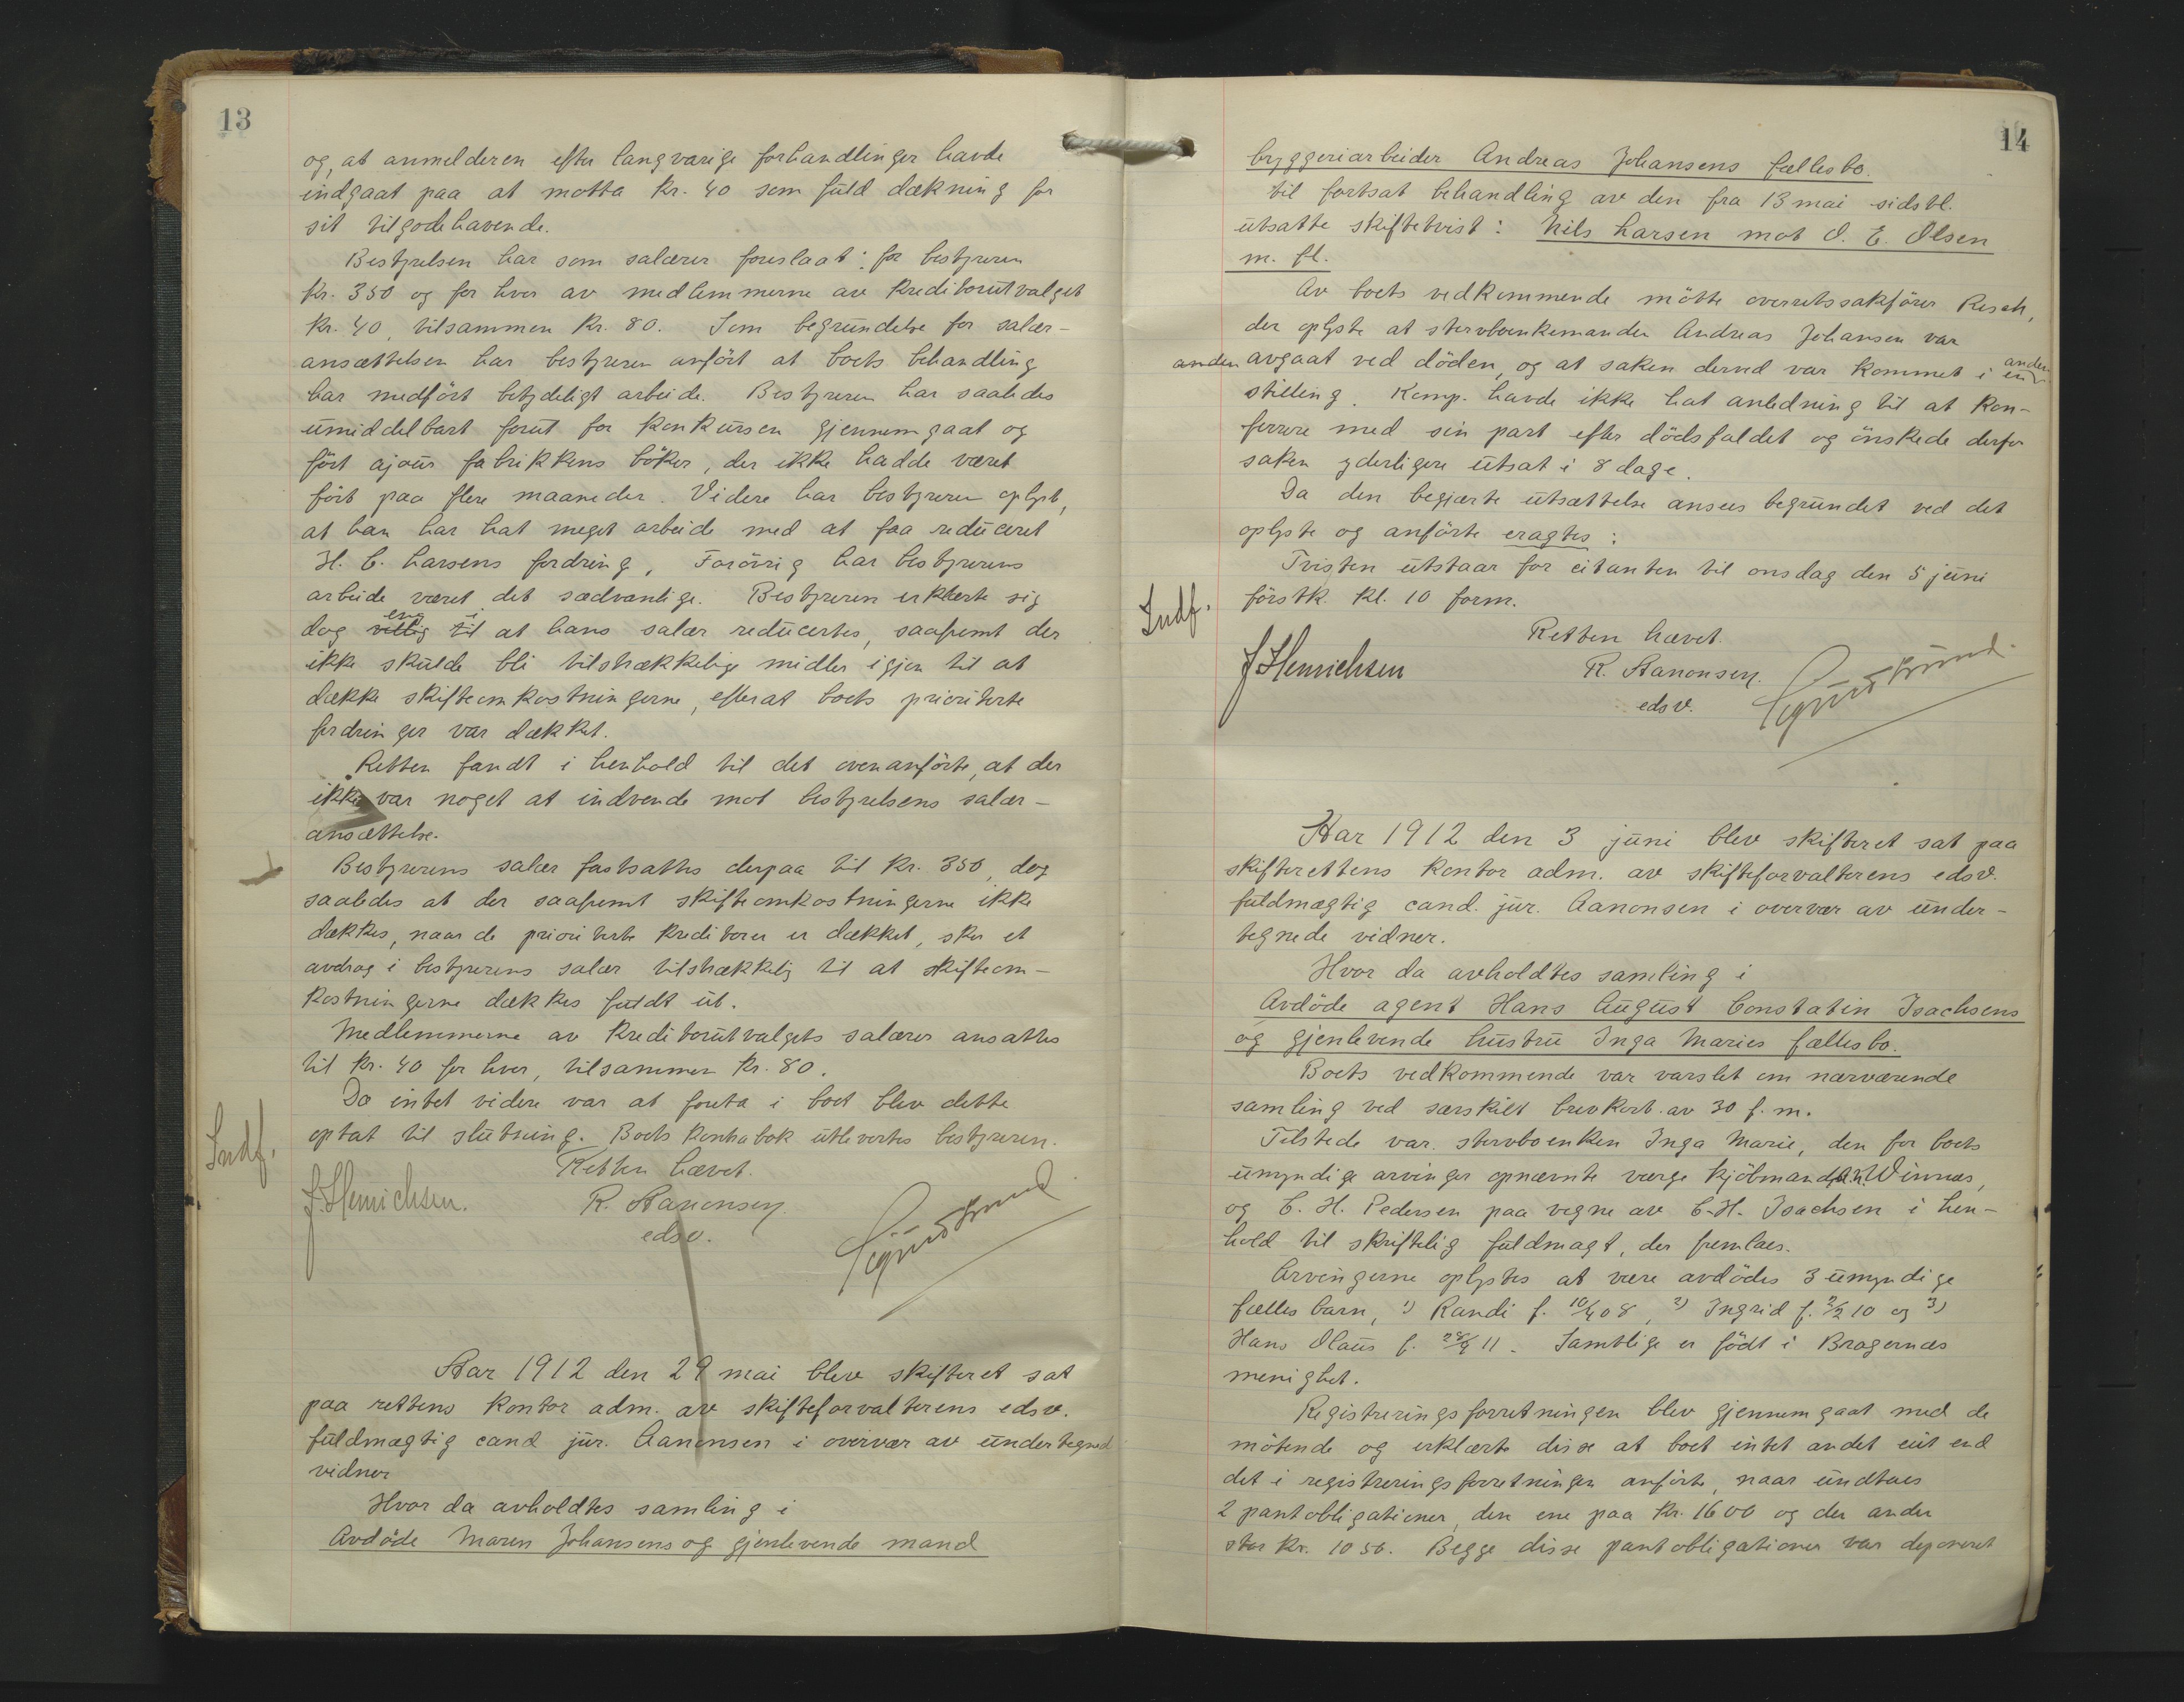 13
og, at anmelderen efter langvarige forhandlinger havde
indgaat paa at motta kr. 40 som fuld dækning for
sit tilgodehavende.
Bestyrelsen har som salærer foreslaat: for bestyreren
kr. 350 og for hver av medlemmerne av kreditorutvalget
kr. 40, tilsammen kr. 80. Som begrundelse for salær-
ansættelsen har bestyreren anført at boets behandling
har medført betydeligt arbeide. Bestyreren har saaledes
umiddelbart forut for konkursen gjennemgaat og
ført ajour fabrikkens bøker, der ikke hadde været
ført paa flere maaneder. Videre har bestyreren oplyst,
at han har hat meget arbeide med at faa reduceret
H. C. Larsens fordring. Forøvrig har bestyrerens
arbeide været det sædvanlige. Bestyreren erklærte sig
dog enig i at hans salær reducertes, saafremt der
ikke skulde bli tilstrækkelige midler igjen til at
dække skifteomkostningerne, efterat boets prioriterte
fordringer var dækket.
Retten fandt i henhold til det ovenanførte, at der
ikke var noget at indvende mot bestyrelsens salær-
ansættelse.
Bestyrerens salær fastsattes derpaa til kr. 350, dog
saaledes at der saafremt skifteomkostningerne ikke
dækkes, naar de prioriterte kreditorer er dækket, sker et
avdrag i bestyrerens salær tilstrækkelig til at skifteom-
kostningerne dækkes fuldt ut.
Medlemmerne av kreditorutvalgets salærer ansattes
til kr. 40 for hver, tilsammen kr. 80.
Da intet videre var at foreta i boet blev dette
optat til slutning. Boets kontrabok utlevertes bestyreren.
Indf.
Retten hævet.
J. Henrichsen. R. Aanonsen.
edsv.
Aar 1912 den 29 mai blev skifteret sat
paa rettens kontor adm. av skifteforvalterens edsv.
fuldmægtig cand. jur. Aanonsen i overvær av undertegned
vidner
Hvor da avholdtes samling i
Avdøde Maren Johansens og gjenlevende mand
14
bryggeriarbeider Andreas Johansens fællesbo.
til fortsat behandling av den fra 13 mai sidstl.
utsatte skiftetvist: Nils Larsen mot O. E. Olsen
m. fl.
Av boets vedkommende møtte overretssakfører Resch,
der oplyste at stervboenkemanden Andreas Johansen var
anden avgaat ved døden, og at saken derved var kommet i en anden
stilling. Komp. havde ikke hat anledning til at kon-
ferrere med sin part efter dødsfaldet og ønskede derfor
saken yderligere utsat i 8 dage.
Da den begjærte utsættelse ansees begrundet ved det
oplyste og anførte eragtes:
Tvisten utstaar for citanten til onsdag den 5 juni
førstk. kl. 10 form.
Indf.
Retten hævet.
J Henrichsen R. Aanonsen.
edsv.
Aar 1912 den 3 juni blev skifteret sat paa
skifterettens kontor adm. av skifteforvalterens edsv.
fuldmægtig cand. jur. Aanonsen i overvær av under-
tegnede vidner.
Hvor da avholdtes samling i
Avdøde agent Hans August Constatin Isachsens
og gjenlevende hustru Inga Maries fællesbo.
Boets vedkommende var varslet om nærværende
samling ved særskilt brevkort av 30 f. m.
Tilstede var stervboenken Inga Marie, den for boets
umyndige arvinger opnævnte værge kjøbmand Winnæs,
og C. H. Pedersen paa vegne av C. H. Isachsen i hen-
hold til skriftelig fuldmagt, der fremlaes.
Arvingerne oplystes at være avdødes 3 umyndige
fælles barn, 1) Randi f. 10/4 08, 2) Ingrid f. 2/2 10 og 3)
Hans Olaus f. 28/9 11. Samtlige er født i Bragernæs
menighet.
Registreringsforretningen blev gjennemgaat med de
møtende og erklærte disse at boet intet andet eiet end
det i registreringsforretningen anførte, naar undtaes
2 pantobligationer, den ene paa kr. 1600 og den anden
stor kr. 1050. Begge disse pantobligationer var deponeret